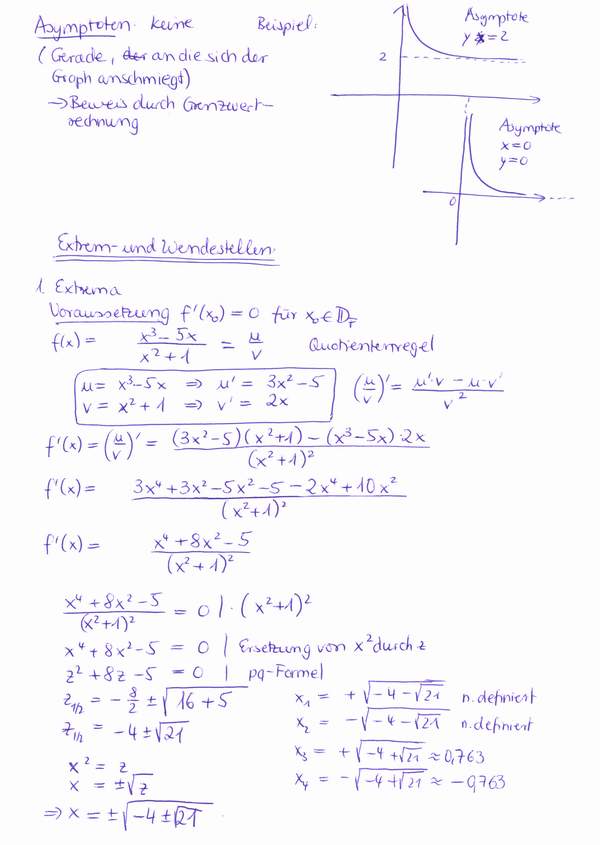 Asymptoten: keine Beispiel:
(Gerade, an die sich der
Graph anschmiegt)
→ Beweis durch Grenzwert-
rechnung
Asymptote
y = 2
2
Asymptote
x = 0
y = 0
0
Extrem- und Wendestellen.
1. Extrema
Voraussetzung f'(x₀) = 0 für x₀ ∈ 𝔻f
f(x) = (x³ - 5x)/(x² + 1) = u/v Quotientenregel
u = x³ - 5x ⇒ u' = 3x² - 5 (u/v)' = (u'·v - u·v')/v²
v = x² + 1 ⇒ v' = 2x
f'(x) = (u/v)' = ((3x² - 5)(x² + 1) - (x³ - 5x)·2x)/(x² + 1)²
f'(x) = (3x⁴ + 3x² - 5x² - 5 - 2x⁴ + 10x²)/(x² + 1)²
f'(x) = (x⁴ + 8x² - 5)/(x² + 1)²
(x⁴ + 8x² - 5)/(x² + 1)² = 0 | ·(x² + 1)²
x⁴ + 8x² - 5 = 0 | Ersetzung von x² durch z
z² + 8z - 5 = 0 | pq-Formel
z₁/₂ = -8/2 ± √(16 + 5)
z₁/₂ = -4 ± √21
x² = z
x = ±√z
⇒ x = ±√(-4 ± √21)
x₁ = +√(-4 - √21) n. definiert
x₂ = -√(-4 - √21) n. definiert
x₃ = +√(-4 + √21) ≈ 0,763
x₄ = -√(-4 + √21) ≈ -0,763